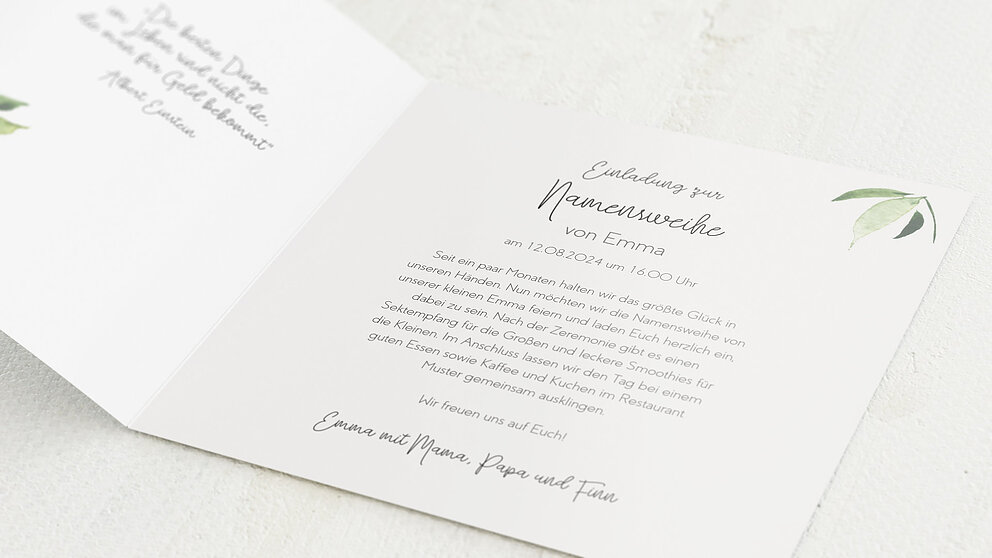 "Die besten Dinge
im Leben sind nicht die,
die man für Geld bekommt"
Albert Einstein
Einladung zur
Namensweihe
von Emma
am 12.08.2024 um 16.00 Uhr
Seit ein paar Monaten halten wir das größte Glück in
unseren Händen. Nun möchten wir die Namensweihe von
unserer kleinen Emma feiern und laden Euch herzlich ein,
dabei zu sein. Nach der Zeremonie gibt es einen
Sektempfang für die Großen und leckere Smoothies für
die Kleinen. Im Anschluss lassen wir den Tag bei einem
guten Essen sowie Kaffee und Kuchen im Restaurant
Muster gemeinsam ausklingen.
Wir freuen uns auf Euch!
Emma mit Mama, Papa und Finn